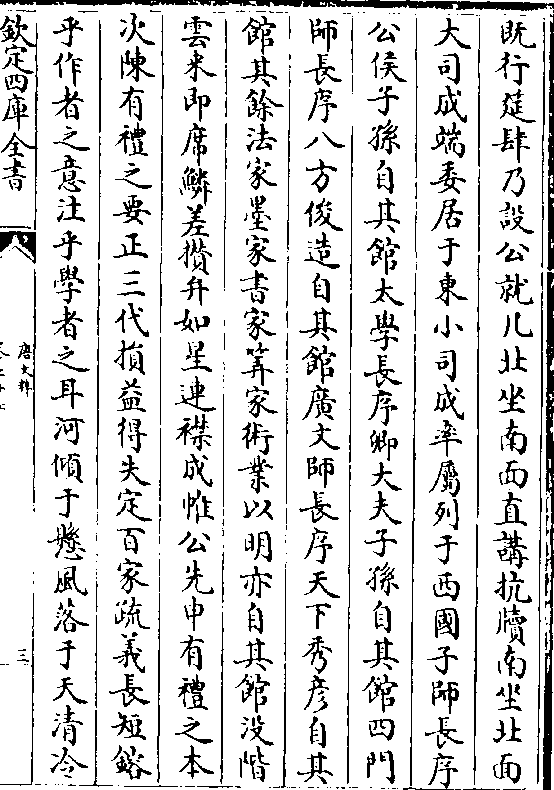 既行筵肆乃設公就几北坐南面直講抗牘南坐北面
大司成端委居于東小司成率屬列于西國子師長序
公侯子孫自其館太學長序卿大夫子孫自其館四門
師長序八方俊造自其館廣文師長序天下秀彦自其
館其餘法家墨家書家筭家術業以明亦自其館没階
雲来即席鱗差攢弁如星連襟成帷公先申有禮之本
次陳有禮之要正三代損益得失定百家疏義長短鎔
乎作者之意注乎學者之耳河傾于懸風落于天清泠
欽定四庫全書
唐文粹
三